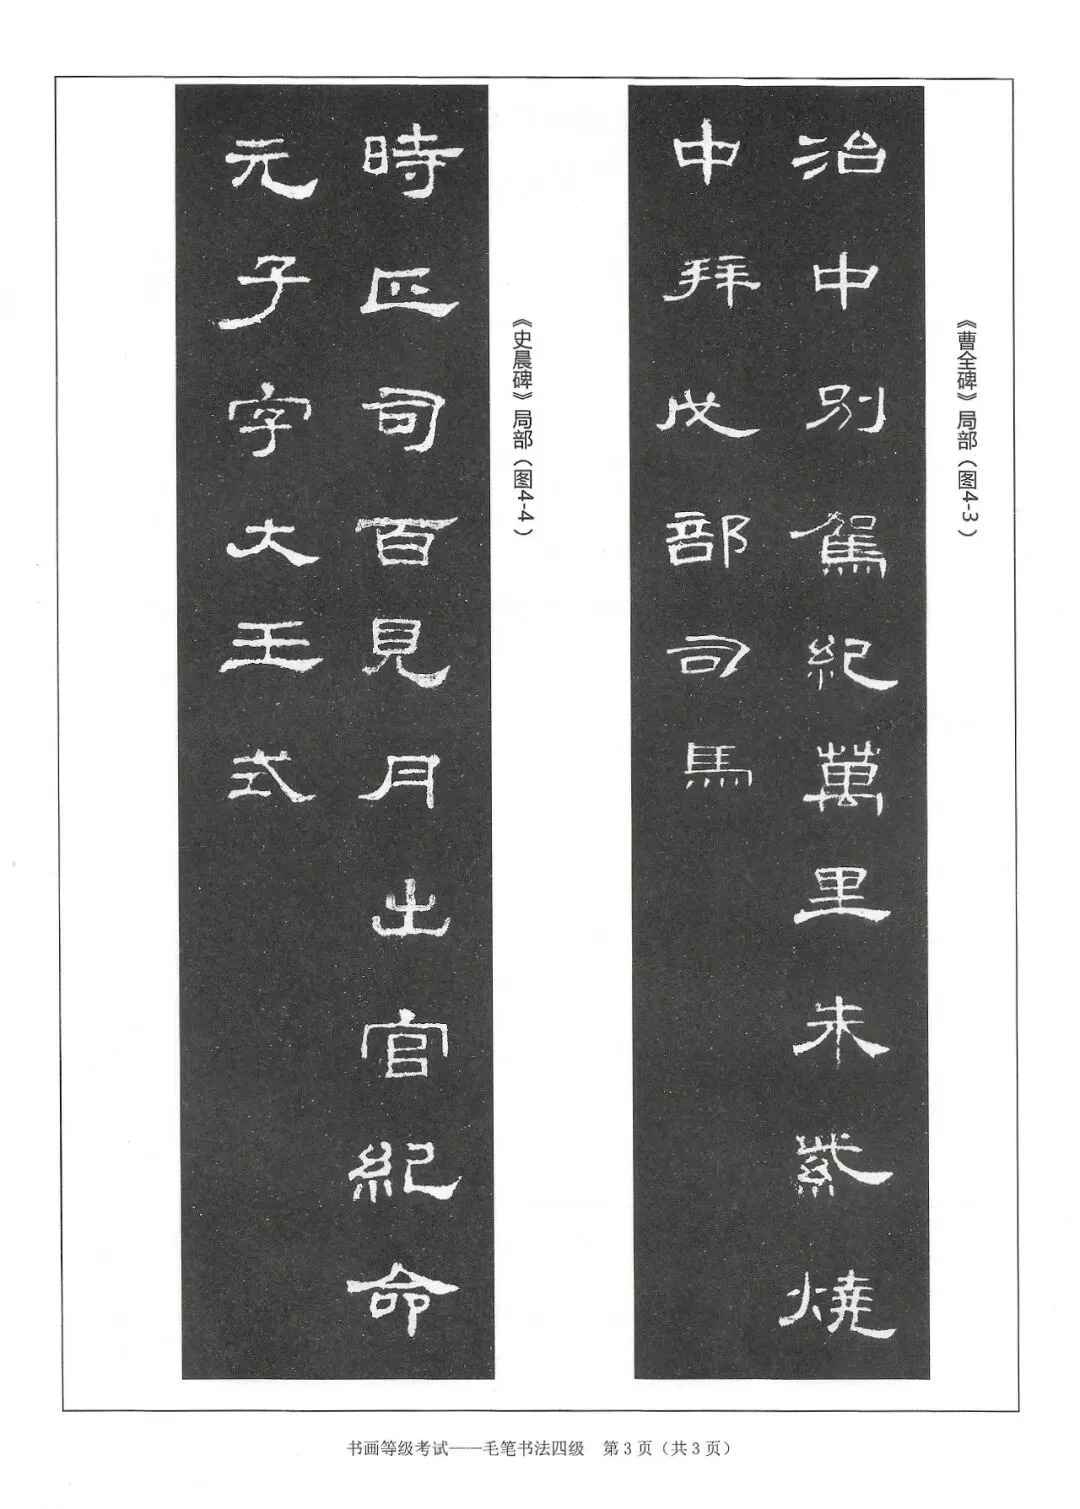 《曹全碑》局部（图4-3）
治中别駕紀萬里朱紫燒
中拜戊部司馬
《史晨碑》局部（图4-4）
時正司百見月出官紀命
元子字大王式
书画等级考试——毛笔书法四级　第3页（共3页）